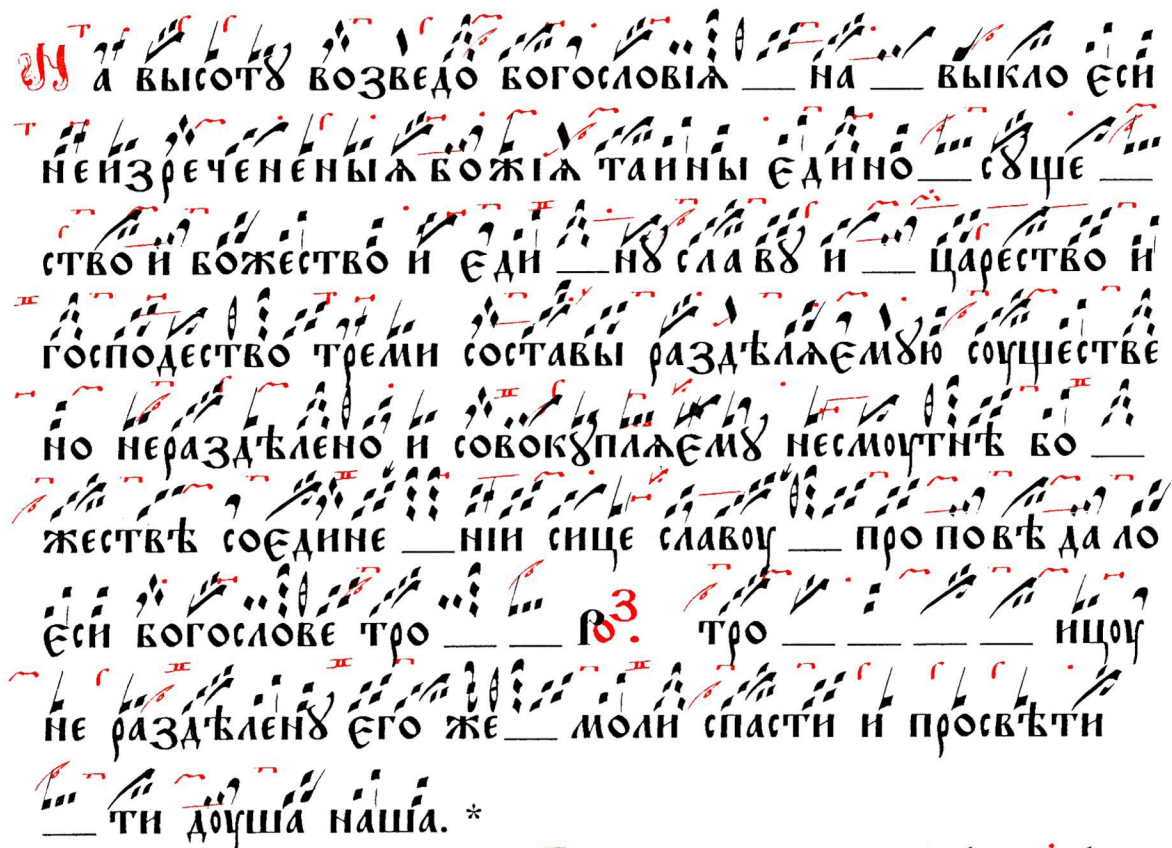 На высотꙋ возведо богословіѧ __ на __ выкло єси
неизречененыѧ божіѧ таины єдино __ сꙋще __
ство и божество и єди __ нꙋ славꙋ и __ царество и
господество треми составы раздѣлѧємꙋю соуществе
но нераздѣлено и совокꙋплѧємꙋ несмоутнѣ бо __
жествѣ соєдине __ ніи сице славоу __ проповѣдало
єси богослове тро __ __ роз. тро __ __ __ __ ицоу
не раздѣленꙋ єго же __ моли спасти и просвѣти
__ ти доуша наша. *